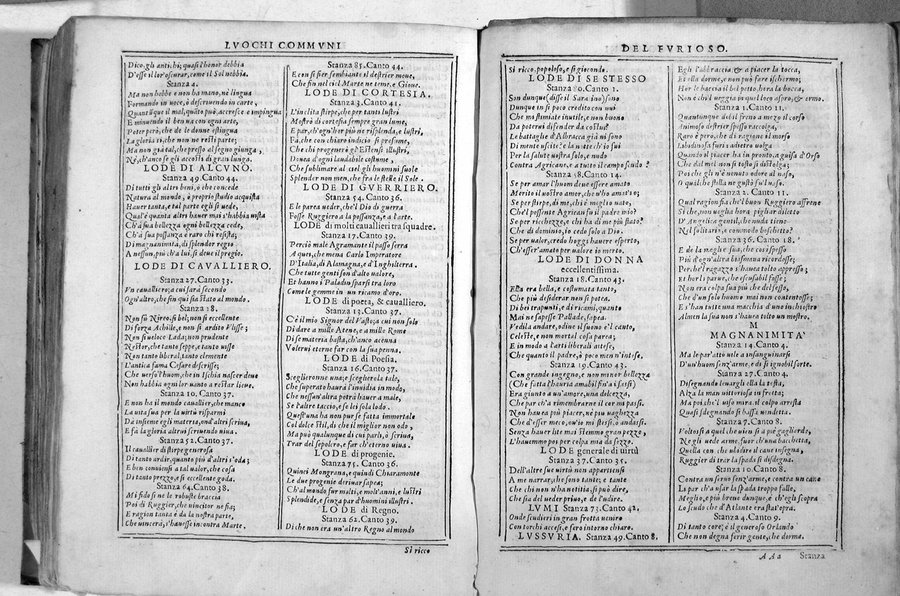 LVOCHI COMMVNI
Dico, gli antichi; quasi l'honor debbia
D'esse il lor'oscurar, come il Sol nebbia.
Stanza 4.
Ma non hebbe e non ha mano, nè lingua
Formando in voce, ò descriuendo in carte,
Quantunque il mal, quanto può, accresce e impingua
E minuendo il ben va con ogni arte,
Poter però, che de le donne estingua
La gloria sì, che non ne resti parte;
Ma non già tal, che presso al segno giunga,
Nè, ch'anco se gli accosti di gran lunga.
LODE DI ALCVNO.
Stanza 49. Canto 44.
Di tutti gli altri beni, ò che concede
Natura al mondo, ò proprio studio acquista
Hauer tanta, e tal parte egli si uede,
Qual'è quanta altri hauer mai s'habbia uista
Ch'à sua bellezza ogni bellezza cede,
Ch'à sua possanza è raro chi resista;
Di magnanimità, di splendor regio
A nessun, più ch'a lui, si deue il pregio.
LODE DI CAVALLIERO.
Stanza 27. Canto 33.
Vn caualliero; a cui sarà secondo
Ogn'altro, che fin qui sia stato al mondo.
Stanza 28.
Non fù Nireo sì bel, non sì eccellente
Di forza Achille, e non sì ardito Vlisse;
Non sì ueloce Lada; non prudente
Nestor, che tanto seppe, e tanto uisse
Non tanto liberal, tanto clemente
L'antica fama Cesare descrisse;
Che uerso l'huom, che in Ischia nascer deue
Non habbia ogni lor uanto a restar lieue.
Stanza 10. Canto 37.
E non ha il mondo cauallier, che manco
La uita sua per la uirtù risparmi
Dà insieme egli materia, ond'altri scriua,
E fà la gloria altrui scriuendo uiua.
Stanza 52. Canto 37.
Il cauallier di stirpe generosa
Di tanto ardir, quanto più d'altri s'oda;
E ben conuiensi a tal ualor, che cosa
Di tanto prezzo, e sì eccellente goda.
Stanza 64. Canto 38.
Mi fido sì ne le robuste braccia
Poi di Ruggier, che uincitor ne fia;
E ragion tanta è da la nostra parte,
Che uincerà, s'hauesse incontra Marte.
Stanza 85. Canto 44.
E con sì fier sembiante il destrier moue,
Che fin nel ciel Marte ne teme, e Gioue.
LODE DI CORTESIA.
Stanza 3. Canto 41.
L'inclita stirpe, che per tanti lustri
Mostrò di cortesia sempre gran lume,
E par, ch'ogn'hor più ne risplenda, e lustri,
Fà, che con chiaro indicio si presume,
Che chi progenerò gli Estensi illustri,
Douea d'ogni laudabile costume,
Che sublimare al ciel gli huomini suole
Splender non men, che fra le stelle il Sole.
LODE DI GVERRIERO.
Stanza 54. Canto 36.
E le parea ueder, che'l Dio di guerra
Fosse Ruggiero a la possanza, e a l'arte.
LODE di molti cauallieri tra squadre.
Stanza 17. Canto 39.
Perciò male Agramante il passo serra
A quei, che mena Carlo Imperatore
D'Italia, di Alamagna, e d'Inghilterra.
Che tutte genti son d'alto valore,
Et hanno i Paladin sparsi tra loro
Come le gemme in un ricamo d'oro.
LODE di poeta, & caualliero.
Stanza 13. Canto 37.
C'è il mio Signor del Vasto; a cui non solo
Di dare a mille Atene, e a mille Rome
Di se materia basta, ch'anco accenna
Volerui eterne far con la sua penna.
LODE di Poesia.
Stanza 16. Canto 37.
Sceglieronne una; e sceglierola tale,
Che superato haurà l'inuidia in modo,
Che nessun'altra potrà hauer a male,
Se l'altre taccio, e se lei sola lodo.
Quest'una ha non pur se fatta immortale
Col dolce stil, di che il miglior non odo,
Ma può qualunque di cui parli, ò scriua,
Trar del sepolcro, e far ch'eterno uiua.
LODE di progenie.
Stanza 75. Canto 36.
Quinci Mongrana, e quindi Chiaramonte
Le due progenie deriuar sapea;
Ch'al mondo fur molti, e molt'anni, e lustri
Splendide, e senza par d'huomini illustri.
LODE di Regno.
Stanza 62. Canto 39.
Di che non era un'altro Regno al mondo
Sì ricco
DEL FVRIOSO.
Sì ricco, popoloso, e sì giocondo.
LODE DI SE STESSO
Stanza 80. Canto 1.
Son dunque (disse il Saracino) sono
Dunque in sì poco credito con uui
Che mi stimiate inutile, e non buono
Da poterui difender da costui?
Le battaglie d'Albracca già ui sono
Di mente uscite? e la notte ch'io fui
Per la salute uostra solo, e nudo
Contra Agricane, e a tutto il campo scudo?
Stanza 58. Canto 14.
Se per amar l'huom deue essere amato
Merito il uostro amor, che u'ho amat'io;
Se per stirpe, di me, chi è meglio nato,
Che'l possente Agrican fu il padre mio?
Se per ricchezze, e chi ha di me più stato?
Che di dominio, io cedo solo a Dio.
Se per ualor, credo hoggi hauere esperto,
Ch'esser'amato per ualore io merto.
LODE DI DONNA
eccellentissima.
Stanza 18. Canto 43.
Ella era bella, e costumata tanto,
Che più desiderar non si potea.
Di bei trapunti, e di ricami, quanto
Mai ne sapesse Pallade, sapea.
Vedila andare, odine il suono e'l canto,
Celeste, e non mortal cosa parea;
E in modo a l'arti liberali attese,
Che quanto il padre, ò poco men n'intese.
Stanza 19. Canto 43.
Con grande ingegno, e non minor bellezza
(Che fatta l'hauria amabil fin'a i sassi)
Era giunto a un'amore, una dolcezza,
Che par ch'a rimembrarne il cor mi passi.
Non hauea più piacer, nè più uaghezza
Che d'esser meco, ou'io mi stessi, ò andassi.
Senza hauer lite mai stemmo gran pezzo,
L'hauemmo poi per colpa mia da sezzo.
LODE generale di uirtù
Stanza 37. Canto 35.
Dell'altre sue uirtù non appartiensi
A me narrar, che sono tante; e tante
Che chi non n'ha notitia, si può dire,
Che sia del ueder priuo, e de l'udire.
LVMI Stanza 73. Canto 42,
Onde scudieri in gran frotta uenire
Con torchi accesi, e fero intorno chiaro.
LVSSVRIA. Stanza 49. Canto 8.
Egli l'abbraccia & a piacer la tocca,
Et ella dorme, e non può fare ischermo;
Hor le baccia il bel petto, hora la bocca,
Non è chi'l ueggia in quel loco aspro, & ermo.
Stanza 1. Canto 11.
Quantunque debil freno a mezo il corso
Animoso destrier spesso raccolga,
Raro è però, che di ragione il morso
Libidinosa furia adietro uolga
Quando il piacer ha in pronto, a guisa d'Orso
Che dal mel non sì tosto si distolga;
Poi che gli n'è uenuto odore al naso,
O qualche stilla ne gustò su'l uaso.
Stanza 2. Canto 11.
Qual ragion fia che'l buon Ruggiero affrene
Sì che, non uoglia hora pigliar diletto
D'Angelica gentil, che nuda tiene
Nel solitario, e commodo boschetto?
Stanza 36. Canto 18.
E de la moglie sua, che così spesso
Più d'ogn'altra biasmeuea ricordesse;
Per, che'l ragazzo s'hauea tolto appresso;
Et hor li parue, che escusabil fusse;
Non era colpa sua più che del sesso,
Che d'un solo huomo mai non contentosse;
E s'han tutte una macchia d'uno inchiostro,
Almen la sua non s'hauea tolto un mostro.
M
MAGNANIMITA'
Stanza 14. Canto 4.
Ma le par'atto uile a insanguinarsi
D'un'huom senz'arme, e di sì ignobil sorte.
Stanza 27. Canto 4.
Disegnando leuargli ella la testa,
Alza la man uittoriosa in fretta;
Ma poi che'l uiso mira, il colpo arresta
Quasi sdegnando sì bassa uendetta.
Stanza 7. Canto 8.
Voltossi a quel che uien sì a piè gagliardo,
Nè gli uede arme, fuor ch'una bacchetta,
Quella con che ubidire il cane insegna,
Ruggier di trar la spada si disdegna.
Stanza 10. Canto 8.
Contra un seruo senz'arme, e contra un cane
Li par ch'a usar la spada troppo falle,
Meglio, e più breue dunque, è ch'egli scopra
Lo scudo che d'Atlante era stat'opra.
Stanza 4. Canto 9.
Di tanto core, è il generoso Orlando
Che non degna ferir gente, che dorma.
A A a Stanza